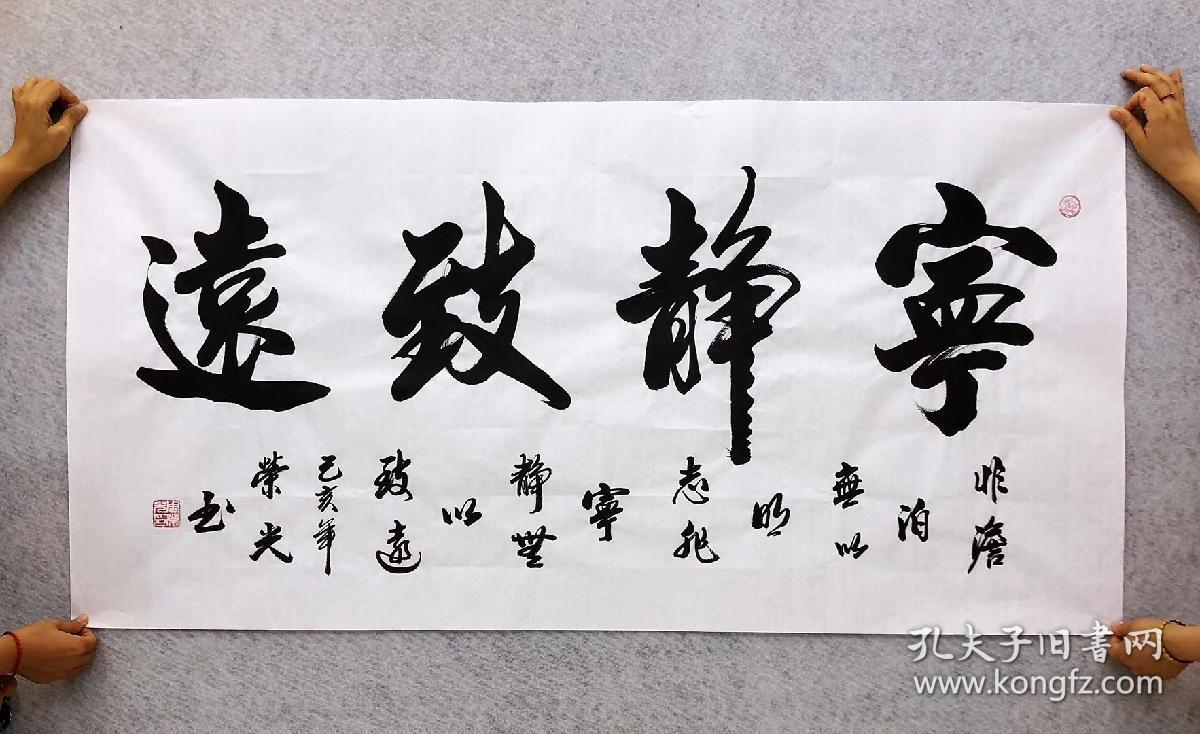 寧靜致遠
非澹
泊
無以
明
志非
寧
靜無
以
致遠
己亥年
榮光
书
孔夫子旧書网
www.kongfz.com